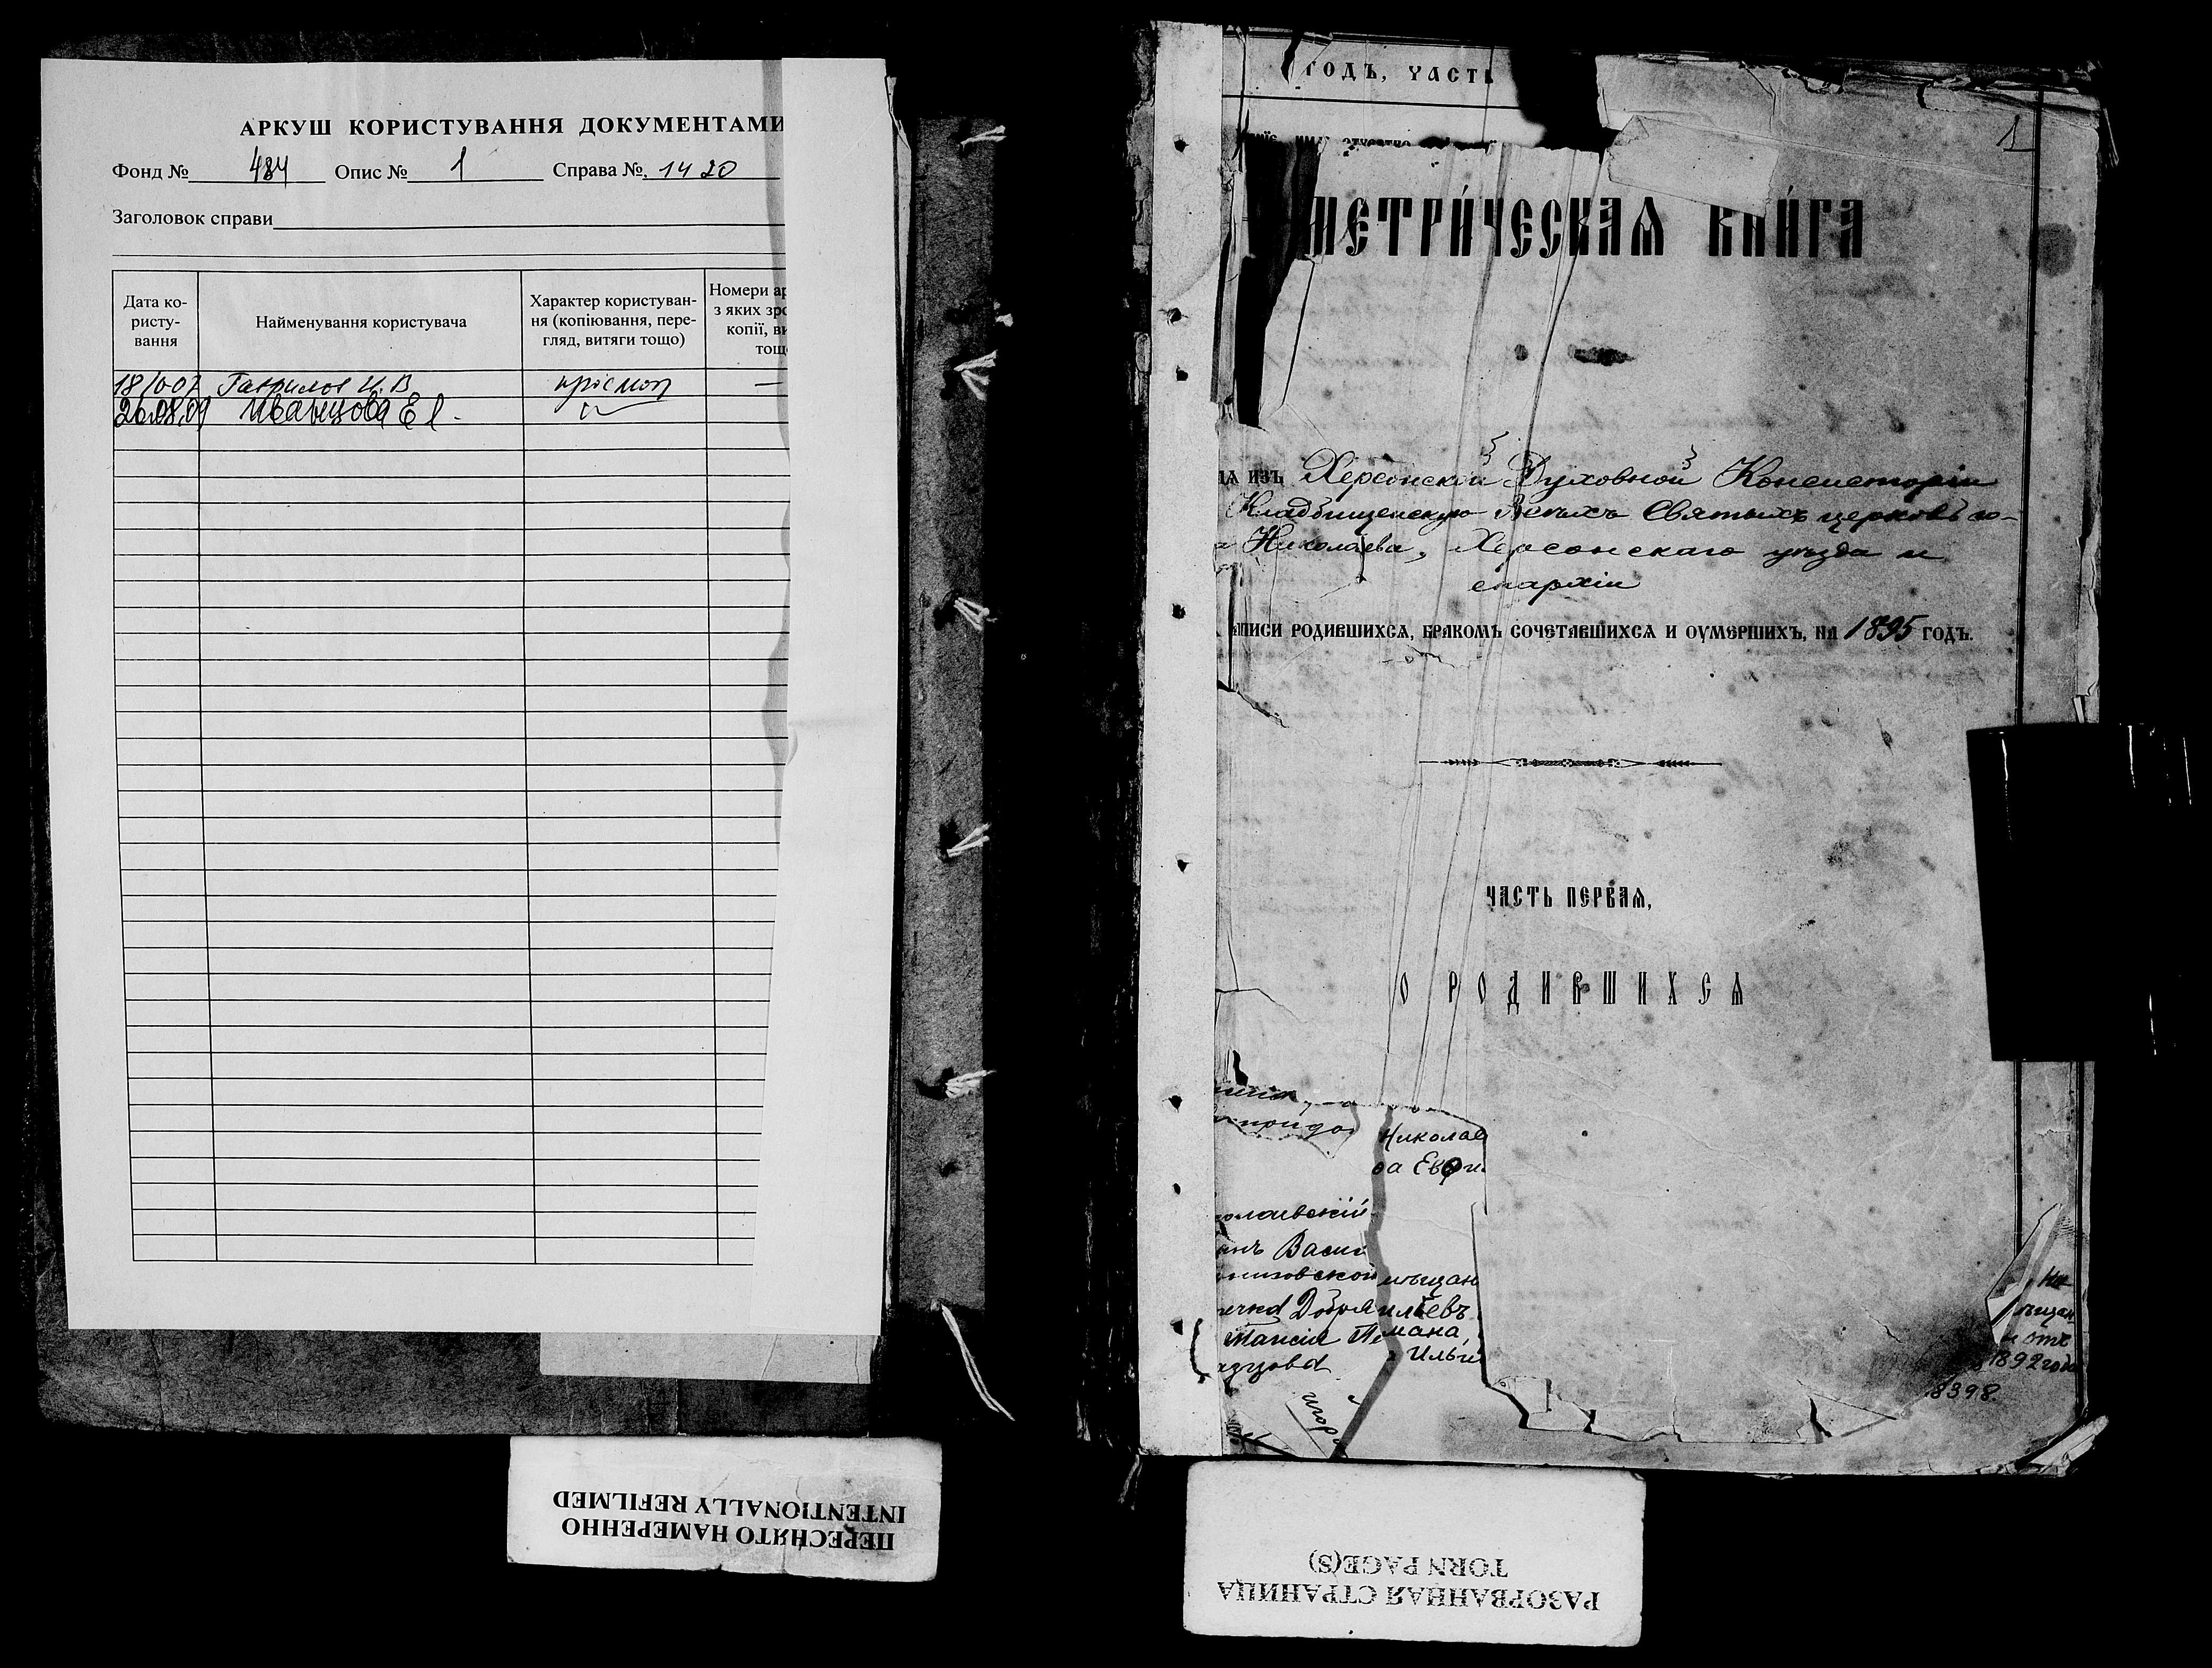 АРКУШ КОРИСТУВАННЯ ДОКУМЕНТАМИ
Фонд № 484 Опис № 1 Справа № 1420
Заголовок справи
Дата ко-
ристу-
вання
Найменування користувача
Характер користуван-
ня (копіювання, пере-
гляд, витяги тощо)
Номери
з яких
копії,
тощ
Гаврилов И. В.
26.08.09 Иванцова Е
ПЕРЕСНЯТО НАМЕРЕННО
INTENTIONALLY REFILMED
ГОДЪ, ЧАСТЬ
1
МЕТРИ́ЧЕСКАѦ КНИ́ГА
изъ Херсонской Духовной Консисторіи
Кладбищенскую Всѣхъ Святыхъ церковь го-
Николаева, Херсонскаго уѣзда и
епархіи
писи родившихсѧ, бракомъ сочетавшихсѧ и оумершихъ, на 1895 годъ.
ЧАСТЬ ПЕРВАѦ,
О РОДИВШИХСѦ
Николае
ва Евфи
олаевскій
Васи
мѣщан
ильевъ
Таисія
мана,
Ильи
мѣщан
1892 года
8398.
РАЗОРВАННАЯ СТРАНИЦА
TORN PAGE(S)